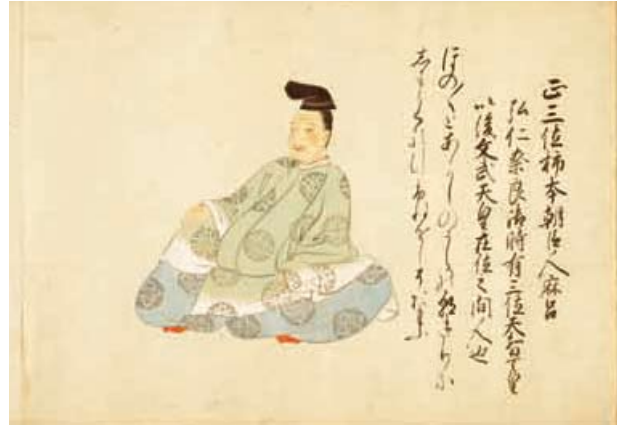 正三位柿本朝臣人麻呂
弘仁奈良御時有三位天智天皇
以後文武天皇在位之間人也
ほの〱とあかしのうらの朝きりに
しまかくれ行舟をしそおもふ